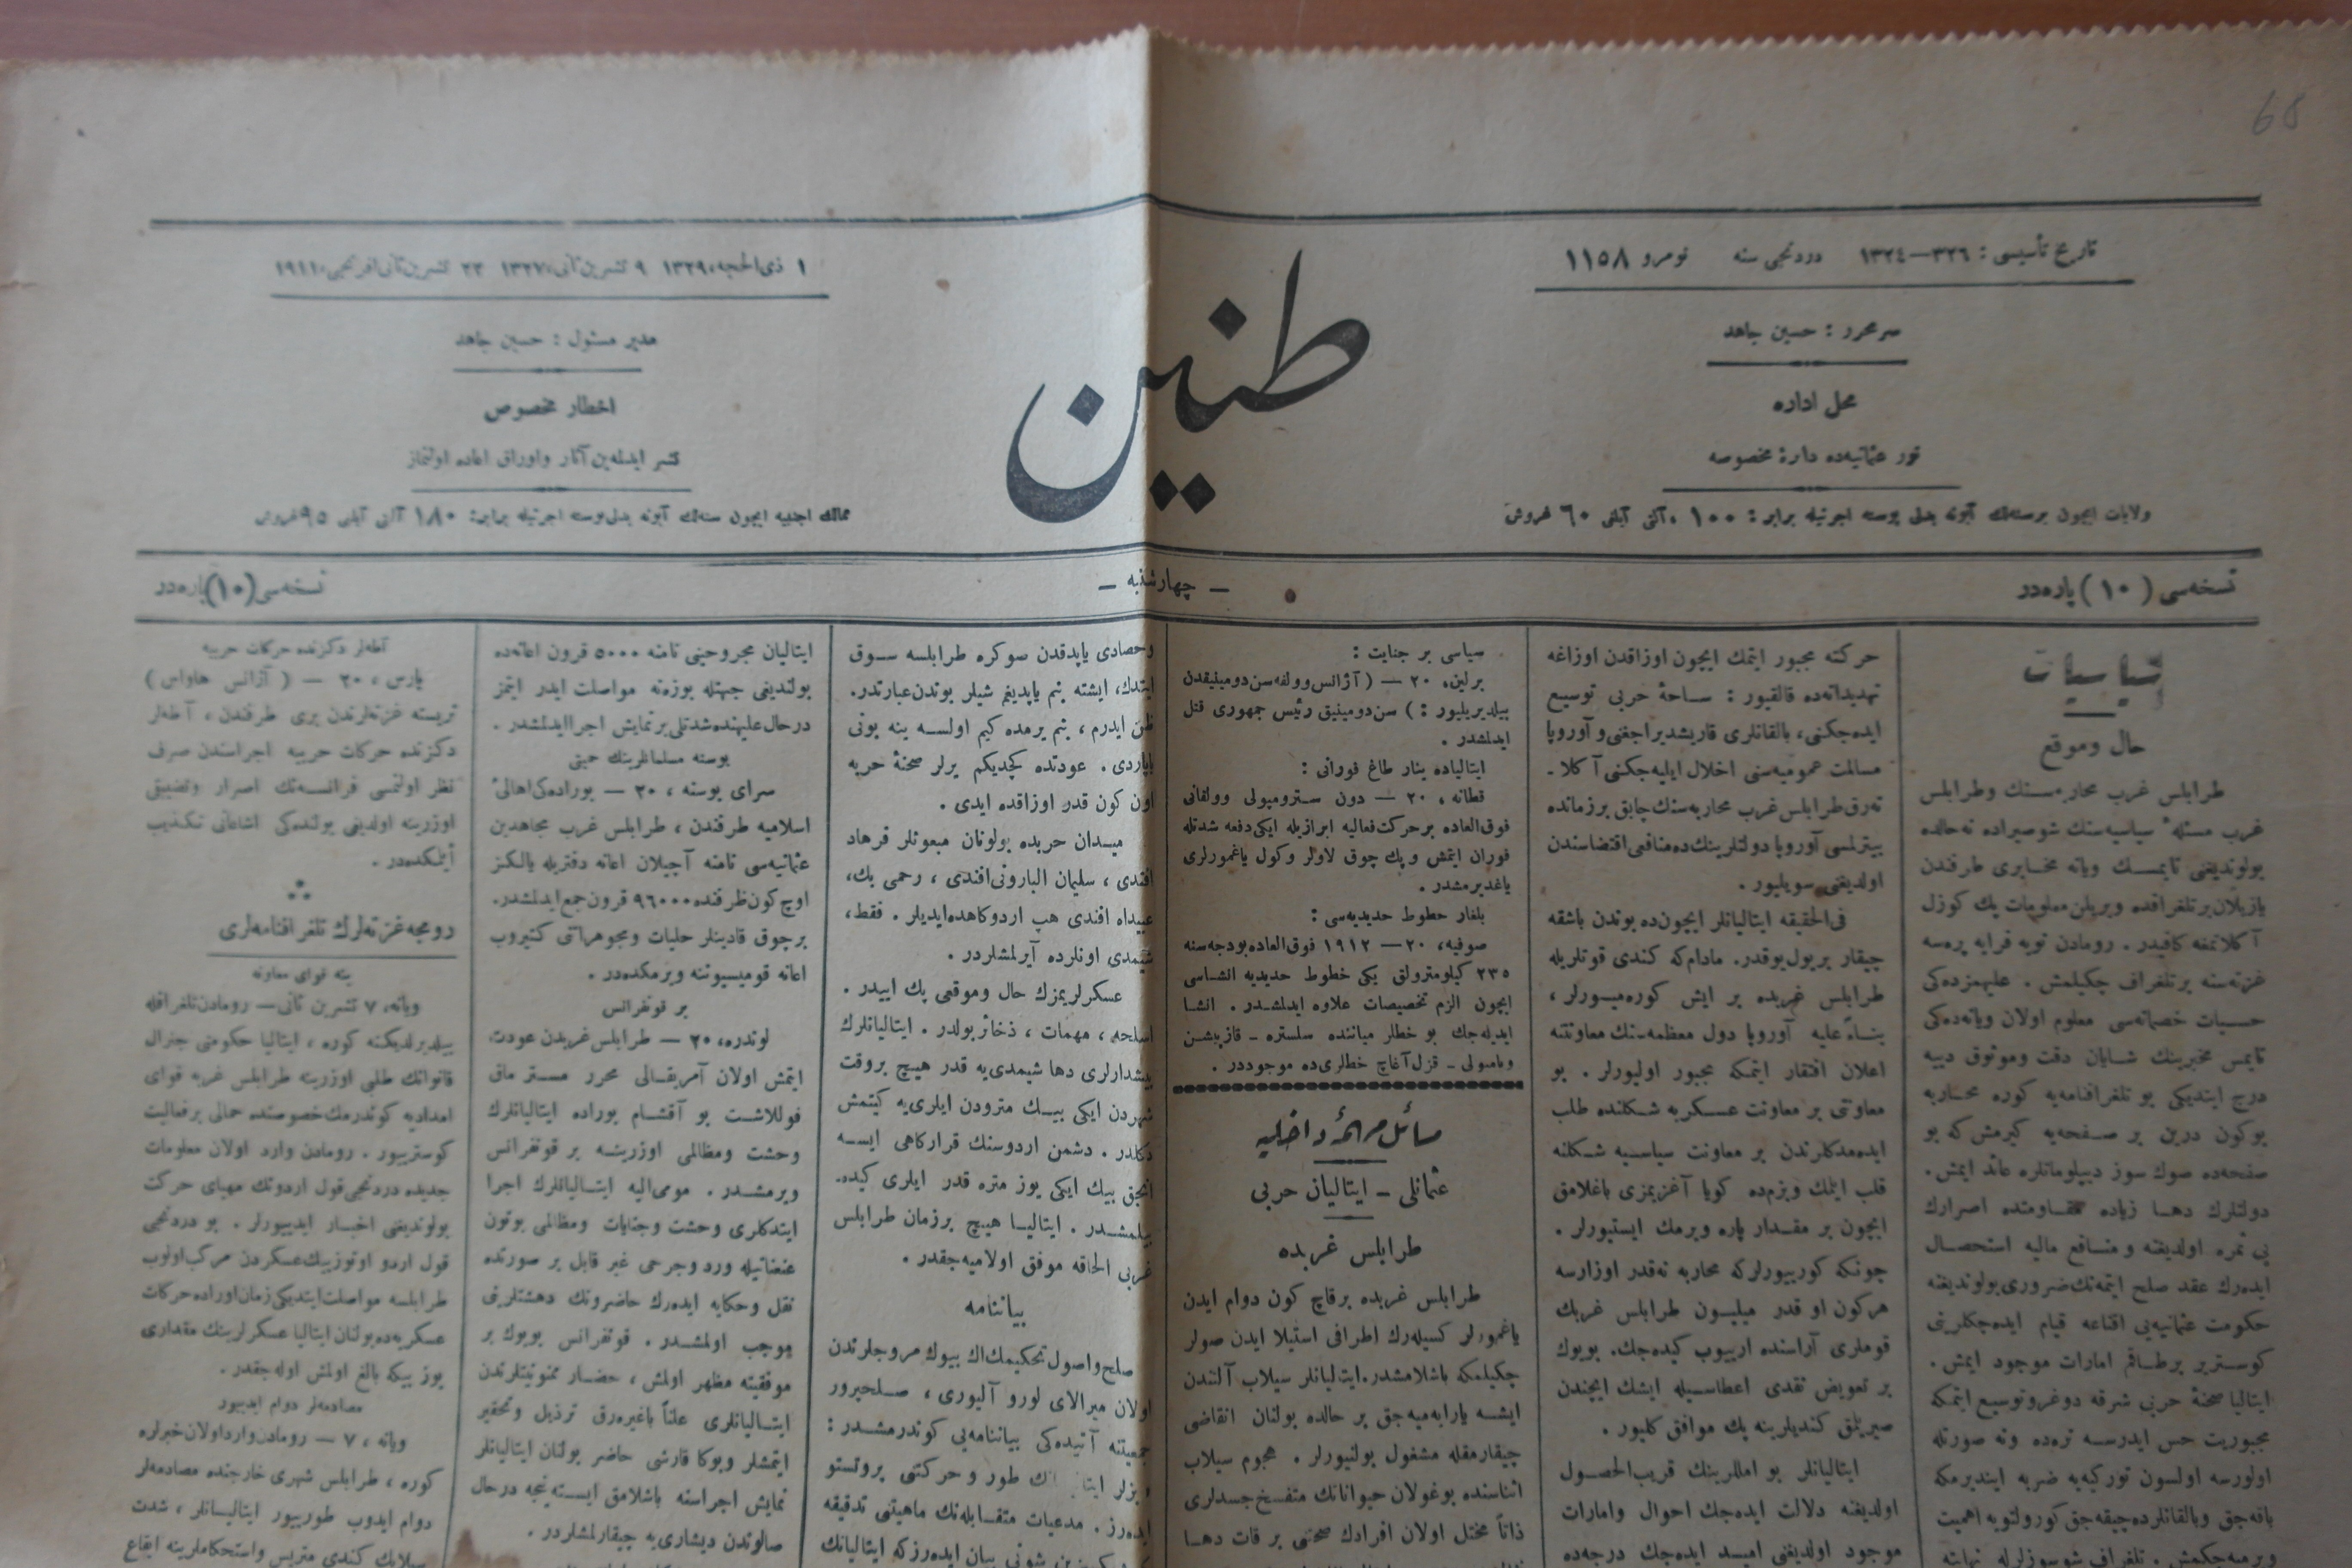 68
تاریخ تأسیسی : ٣٢٦—١٣٢٤ دردنجی سنه نومرو ١١٥٨
سرمحرر : حسین جاهد
محل اداره
نور عثمانیه‌ده دارهٔ مخصوصه
ولایات ایچون برسنه‌لك آبونه بدلی پوسته اجرتیله برابر : ١٠٠ ، آلتی آیلغی ٦٠ غروش
طنین
١ ذی‌الحجه ١٣٢٩ ٩ تشرین ثانی ١٣٢٧ ٢٢ تشرین ثانی افرنجی ١٩١١
مدیر مسئول : حسین جاهد
اخطار مخصوص
نشر ایدلمه‌ین آثار واوراق اعاده اولنماز
ممالك اجنبیه ایچون سنه‌لك آبونه بدلی پوسته اجرتیله برابر : ١٨٠ آلتی آیلغی ٩٥ غروش
نسخه‌سی ( ١٠ ) پاره‌در
— چهارشنبه —
نسخه‌سی (١٠) پاره‌در
سیاسیات
حال وموقع
طرابلس غرب محاربه‌سنك وطرابلس
غرب مسئلهٔ سیاسیه‌سنك شو صیراده نه حالده
بولوندیغنی تایمسك ویانه مخابری طرفندن
یازیلان بر تلغرافده ویریلن معلومات پك کوزل
آکلاتمغه کافیدر . رومادن نویه فرایه پره‌سه
غزته‌سنه بر تلغراف چکیلمش . علیهمزده‌کی
حسیات خصمانه‌سی معلوم اولان ویانه‌ده‌کی
تایمس مخبرینك شایان دقت وموثوق دییه
درج ایتدیکی بو تلغرافنامه‌یه کوره محاربه
بوکون درین بر صفحه‌یه کیرمش که بو
صفحه‌ده صوك سوز دیپلوماتلره عائد ایمش .
دولتلرك دها زیاده مقاومتده اصرارك
بی ثمره اولدیغنه و منافع مالیه استحصال
ایده‌رك عقد صلح ایتمه‌نك ضروری بولوندیغنه
حکومت عثمانیه‌یی اقناعه قیام ایده‌جکلرینی
کوستریر برطاقم امارات موجود ایمش .
ایتالیا صحنهٔ حربی شرقه دوغرو توسیع ایتمکه
مجبوریت حس ایدرسه نره‌ده ونه صورتله
اولورسه اولسون تورکیه‌یه ضربه ایندیرمکه
باقه‌جق وبالقانلرده چیقه‌جق کورولتویه اهمیت
حرکته مجبور ایتمك ایچون اوزاقدن اوزاغه
تهدیداته‌ده قالقیور : ساحهٔ حربی توسیع
ایده‌جکنی ، بالقانلری قاریشدیراجغنی و آوروپا
مسالمت عمومیه‌سنی اخلال ایلیه‌جکنی آکلا ـ
ته‌رق طرابلس غرب محاربه‌سنك چابق بر زمانده
بیترلمسی آوروپا دولتلرینك‌ده منافعی اقتضاسندن
اولدیغنی سویلیور .
فی‌الحقیقه ایتالیانلر ایچون‌ده بوندن باشقه
چیقار بر یول یوقدر . مادام‌که کندی قوتلریله
طرابلس غربده بر ایش کوره‌میورلر ،
بناءً علیه آوروپا دول معظمه‌سنك معاونتنه
اعلان افتقار ایتمکه مجبور اولیورلر . بو
معاونتی بر معاونت عسکریه شکلنده طلب
ایده‌مدکلرندن بر معاونت سیاسیه شکلنه
قلب ایتمك وبزم‌ده کویا آغزیمزی باغلامق
ایچون بر مقدار پاره ویرمك ایستیورلر .
چونکه کورییورلرکه محاربه نه‌قدر اوزارسه
هرکون او قدر میلیون طرابلس غربك
قوملری آراسنده ارییوب کیده‌جك . بویوك
بر تعویض نقدی اعطاسیله ایشك ایچندن
صیریلمق کندیلرینه پك موافق کلیور .
ایتالیانلر بو امللرینك قریب‌الحصول
اولدیغنه دلالت ایده‌جك احوال وامارات
موجود اولدیغنی امید ایده‌جك درجه‌ده
سیاسی بر جنایت :
برلین ، ٢٠ — ( آژانس وولفه سن دومینیقدن
بیلدیریلیور : ) سن دومینیق رئیس جمهوری قتل
ایدلمشدر .
ایتالیاده ینار طاغ فورانی :
قطانه ، ٢٠ — دون سترومبولی وولقانی
فوق‌العاده بر حرکت فعالیه ابرازیله ایکی دفعه شدتله
فوران ایتمش و پك چوق لاولر وکول یاغمورلری
یاغدیرمشدر .
بلغار خطوط حدیدیه‌سی :
صوفیه ، ٢٠ — ١٩١٢ فوق‌العاده بودجه‌سنه
٢٣٥ کیلومترولق یکی خطوط حدیدیه انشاسی
ایچون الزم تخصیصات علاوه ایدلمشدر . انشا
ایدیله‌جك بو خطلر میاننده سلستره ـ قازپیشن
ویامبولی ـ قزل‌آغاچ خطلری‌ده موجوددر .
مسائل مهمهٔ داخلیه
عثمانلی ـ ایتالیان حربی
طرابلس غربده
طرابلس غربده برقاچ کون دوام ایدن
یاغمورلر کسیله‌رك اطرافی استیلا ایدن صولر
چکیلمکه باشلامشدر . ایتالیانلر سیلاب آلتندن
ایشه یارایه‌میه‌جق بر حالده بولنان انقاضی
چیقارمقله مشغول بولنیورلر . هجوم سیلاب
اثناسنده بوغولان حیواناتك متفسخ جسدلری
ذاتاً مختل اولان افرادك صحتنی بر قات دها
وحصادی یاپدقدن صوکره طرابلسه سوق
ایتدك ، ایشته بنم یاپدیغم شیلر بوندن عبارتدر .
ظن ایدرم ، بنم یرمده کیم اولسه ینه بونی
یاپاردی . عودتده کچدیکم یرلر صحنهٔ حربه
اون کون قدر اوزاقده ایدی .
میدان حربده بولونان مبعوثلر فرهاد
افندی ، سلیمان البارونی افندی ، رحمی بك ،
عبیدالله افندی هپ اردوکاهده ایدیلر . فقط ،
شیمدی اونلرده آیرلمشلردر .
عسکرلریمزك حال وموقعی پك اییدر .
اسلحه ، مهمات ، ذخائر بولدر . ایتالیانلرك
پیشدارلری دها شیمدی‌یه قدر هیچ بر وقت
شهردن ایکی بیك مترودن ایلری‌یه کیتمش
دکلدر . دشمن اردوسنك قرارکاهی ایسه
انجق بیك ایکی یوز متره قدر ایلری کیده ـ
بیلمشدر . ایتالیا هیچ بر زمان طرابلس
غربی الحاقه موفق اولامیه‌جقدر .
بیاننامه
صلح واصول تحکیمك اك بیوك مروجلرندن
اولان میرالای لورو آلیوری ، صلحپرور
جمعیتنه آتیده‌کی بیاننامه‌یی کوندرمشدر :
بزلر ك طور و حرکتنی پروتستو
ایده‌رز . مدعیات متقابله‌نك ماهیتنی تدقیقه
شونی بیان ایده‌رزکه ایتالیانك
ایتالیان مجروحینی نامنه ٥٠٠٠ قرون اعانه‌ده
بولندیغی جهتله بوزه‌نه مواصلت ایدر ایتمز
درحال علیهنده شدتلی بر نمایش اجرا ایدلمشدر .
بوسنه مسلمانلرینك حمیتی
سرای بوسنه ، ٢٠ — بوراده‌کی اهالیٔ
اسلامیه طرفندن ، طرابلس غرب مجاهدین
عثمانیه‌سی نامنه آچیلان اعانه دفتریله یالکز
اوچ کون ظرفنده ٩٦٠٠٠ قرون جمع ایدلمشدر .
بر چوق قادینلر حلیات ومجوهراتنی کتیروب
اعانه قومیسیوننه ویرمکده‌در .
بر قونفرانس
لوندره ، ٢٠ — طرابلس غربدن عودت
ایتمش اولان آمریقالی محرر مستر ماق
قوللاشت بو آقشام بوراده ایتالیانلرك
وحشت ومظالمی اوزرینه بر قونفرانس
ویرمشدر . مومی‌الیه ایتالیانلرك اجرا
ایتدکلری وحشت وجنایات ومظالمی بوتون
عنعناتیله ورد وجرحی غیر قابل بر صورتده
نقل وحکایه ایده‌رك حاضرونك دهشتلرینی
موجب اولمشدر . قونفرانس بویوك بر
موفقیته مظهر اولمش ، حضار ممنونیتلرندن
ایتالیانلری علناً باغیره‌رق ترذیل وتحقیر
ایتمشلر وبوکا قارشی حاضر بولنان ایتالیانلر
نمایش اجراسنه باشلامق ایسته‌ینجه درحال
صالوندن دیشاری‌یه چیقارلمشلردر .
آطه‌لر دکزنده حرکات حربیه
پارس ، ٢٠ — ( آژانس هاواس )
تریسته غزته‌لرندن بری طرفندن ، آطه‌لر
دکزنده حرکات حربیه اجراسندن صرف
نظر اولنمسی فرانسه‌نك اصرار وتضییق
اوزرینه اولدیغی یولنده‌کی اشاعاتی تکذیب
ایتمکده‌در .
رومجه غزته‌لرك تلغرافنامه‌لری
ینه قوای معاونه
ویانه ، ٧ تشرین ثانی — رومادن تلغرافله
بیلدیرلدیکنه کوره ، ایتالیا حکومتی جنرال
قانوانك طلبی اوزرینه طرابلس غربه قوای
امدادیه کوندرمك خصوصنده حمالی بر فعالیت
کوستریور . رومادن وارد اولان معلومات
جدیده دردنجی قول اردونك مهیای حرکت
بولوندیغنی اخبار ایدییورلر . بو دردنجی
قول اردو اوتوز بیك عسکردن مرکب اولوب
طرابلسه مواصلت ایتدیکی زمان اوراده حرکات
عسکریه‌ده بولنان ایتالیا عسکرلرینك مقداری
یوز بیکه بالغ اولمش اوله‌جقدر .
مصادمه‌لر دوام ایدییور
ویانه ، ٧ — رومادن وارد اولان خبرلره
کوره ، طرابلس شهری خارجنده مصادمه‌لر
دوام ایدوب طورییور ایتالیانلر ، شدت
سیلابك کندی متریس واستحکاملرینه ایقاع